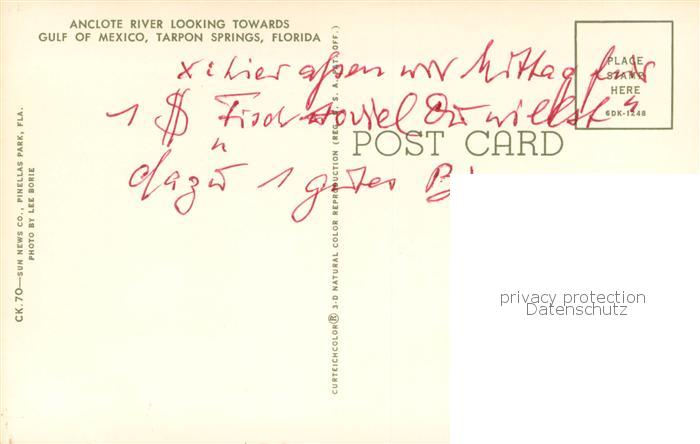 ANCLOTE RIVER LOOKING TOWARDS
GULF OF MEXICO, TARPON SPRINGS, FLORIDA
x: hier assen wir Mittag für
1 $ Fisch "soviel Du willst"
dazu 1 gutes
POST CARD
PLACE
STAMP
HERE
6DK-1248
CK.70—SUN NEWS CO., PINELLAS PARK, FLA.
PHOTO BY LEE BORIE
CURTEICHCOLOR® 3-D NATURAL COLOR REPRODUCTION (REG. U. S. A. PAT. OFF.)
privacy protection
Datenschutz